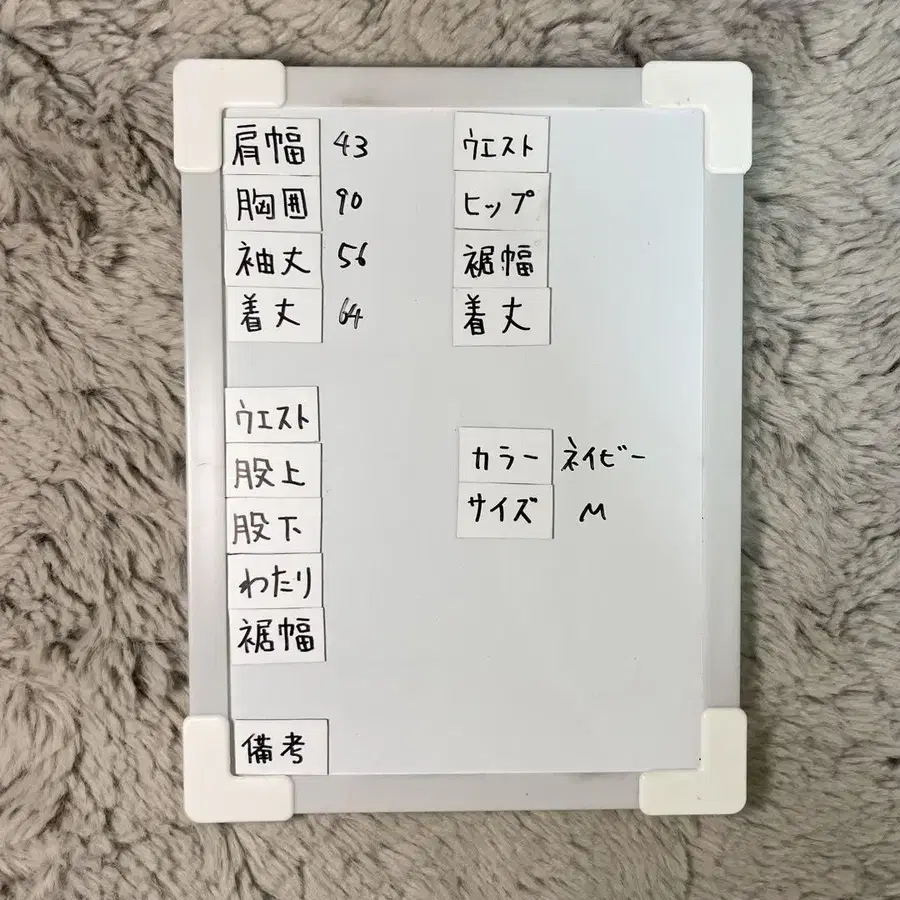 肩幅 43
胸囲 90
袖丈 56
着丈 64
ウエスト
ヒップ
裾幅
着丈
ウエスト
股上
股下
わたり
裾幅
カラー ネイビー
サイズ M
備考